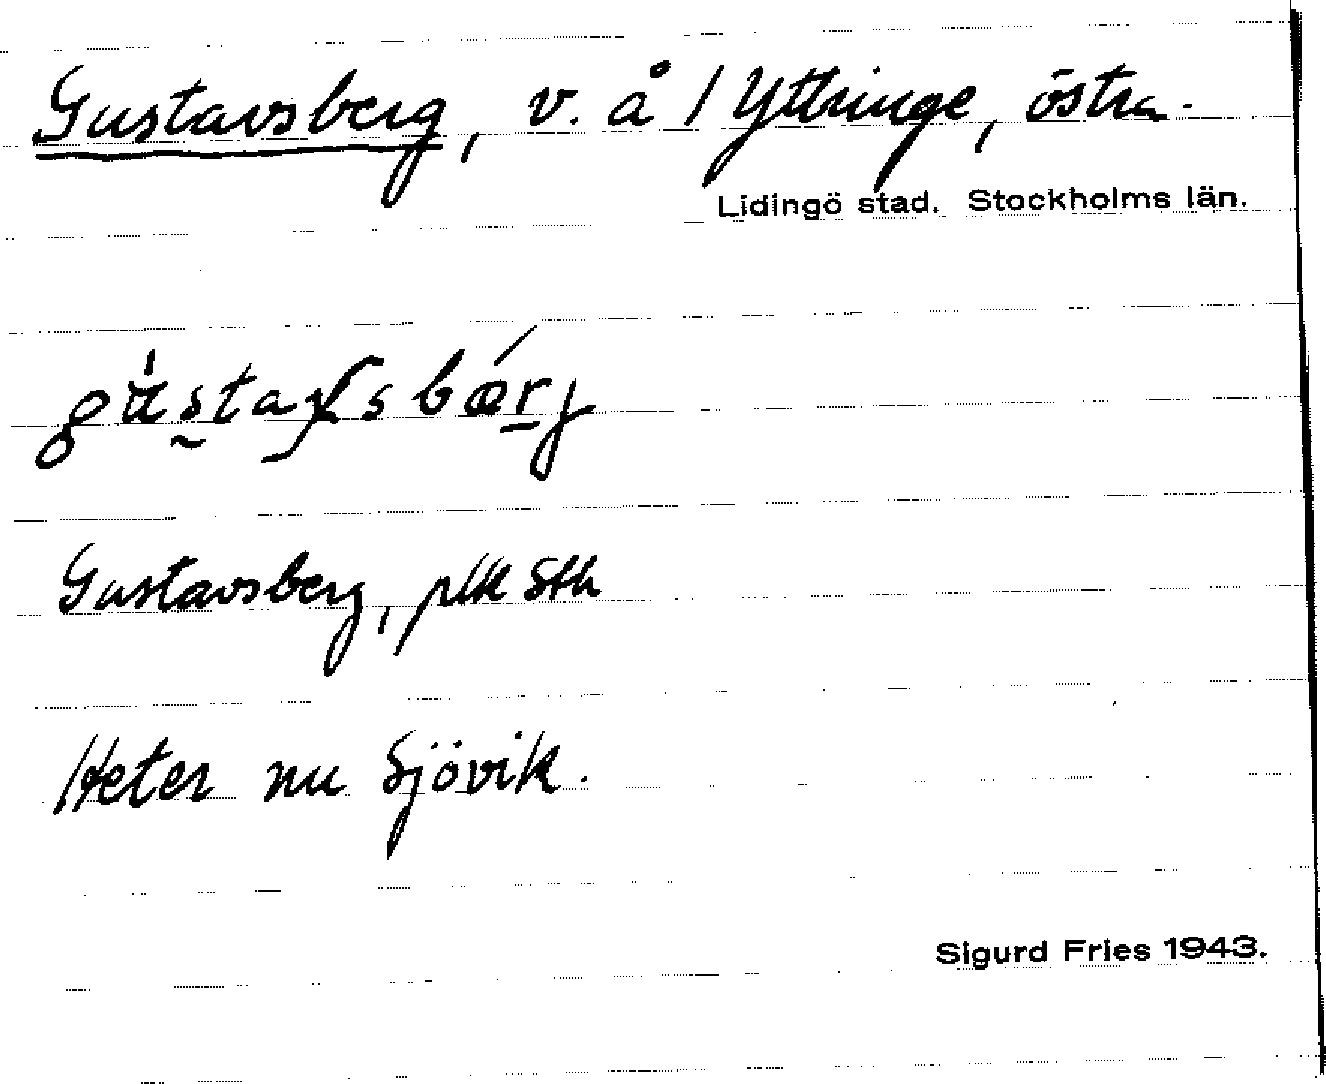 Gustavsberg, v. å / Yttringe, östra.
Lidingö stad. Stockholms län.
Gustavsberg, plkSth
Heter nu Sjövik.
Sigurd Fries 1943.